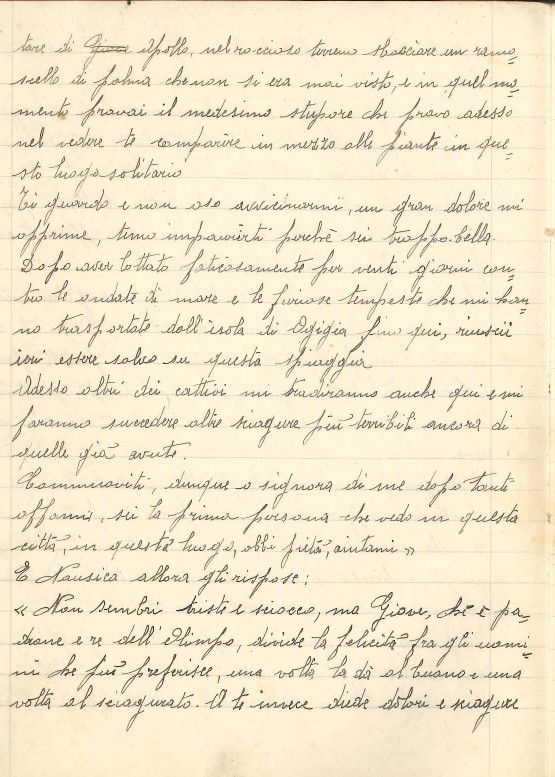 tare di Giove Apollo, nel roccioso terreno sbocciare un ramo=
scello di palma che non si era mai visto, e in quel mo=
mento provai il medesimo stupore che provo adesso
nel vedere te comparire in mezzo alle piante in que=
sto luogo solitario
Ti guardo e non oso avvicinarmi, un gran dolore mi
opprime, temo impaurirti perchè sei troppo bella.
Dopo aver lottato faticosamente per venti giorni con=
tro le ondate di mare e le furiose tempeste che mi han=
no trasportate dall'isola di Ogigia fino qui, riuscii
ieri essere salvo su questa spiaggia
Adesso altri dei cattivi mi tradiranno anche qui e mi
faranno succedere altre sciagure più terribili ancora di
quelle già avute.
Commuoviti, dunque o signora di me dopo tanti
affanni, sei la prima persona che vedo in questa
città, in questa luogo, abbi pietà, aiutami »
E Nausica allora gli rispose:
« Non sembri triste e sciocco, ma Giove, che è pa=
drone e re dell'Olimpo, divide la felicità fra gli uomi=
ni che più preferisce, una volta la dà al buono e una
volta al sciagurato. A te invece diede dolori e sciagure